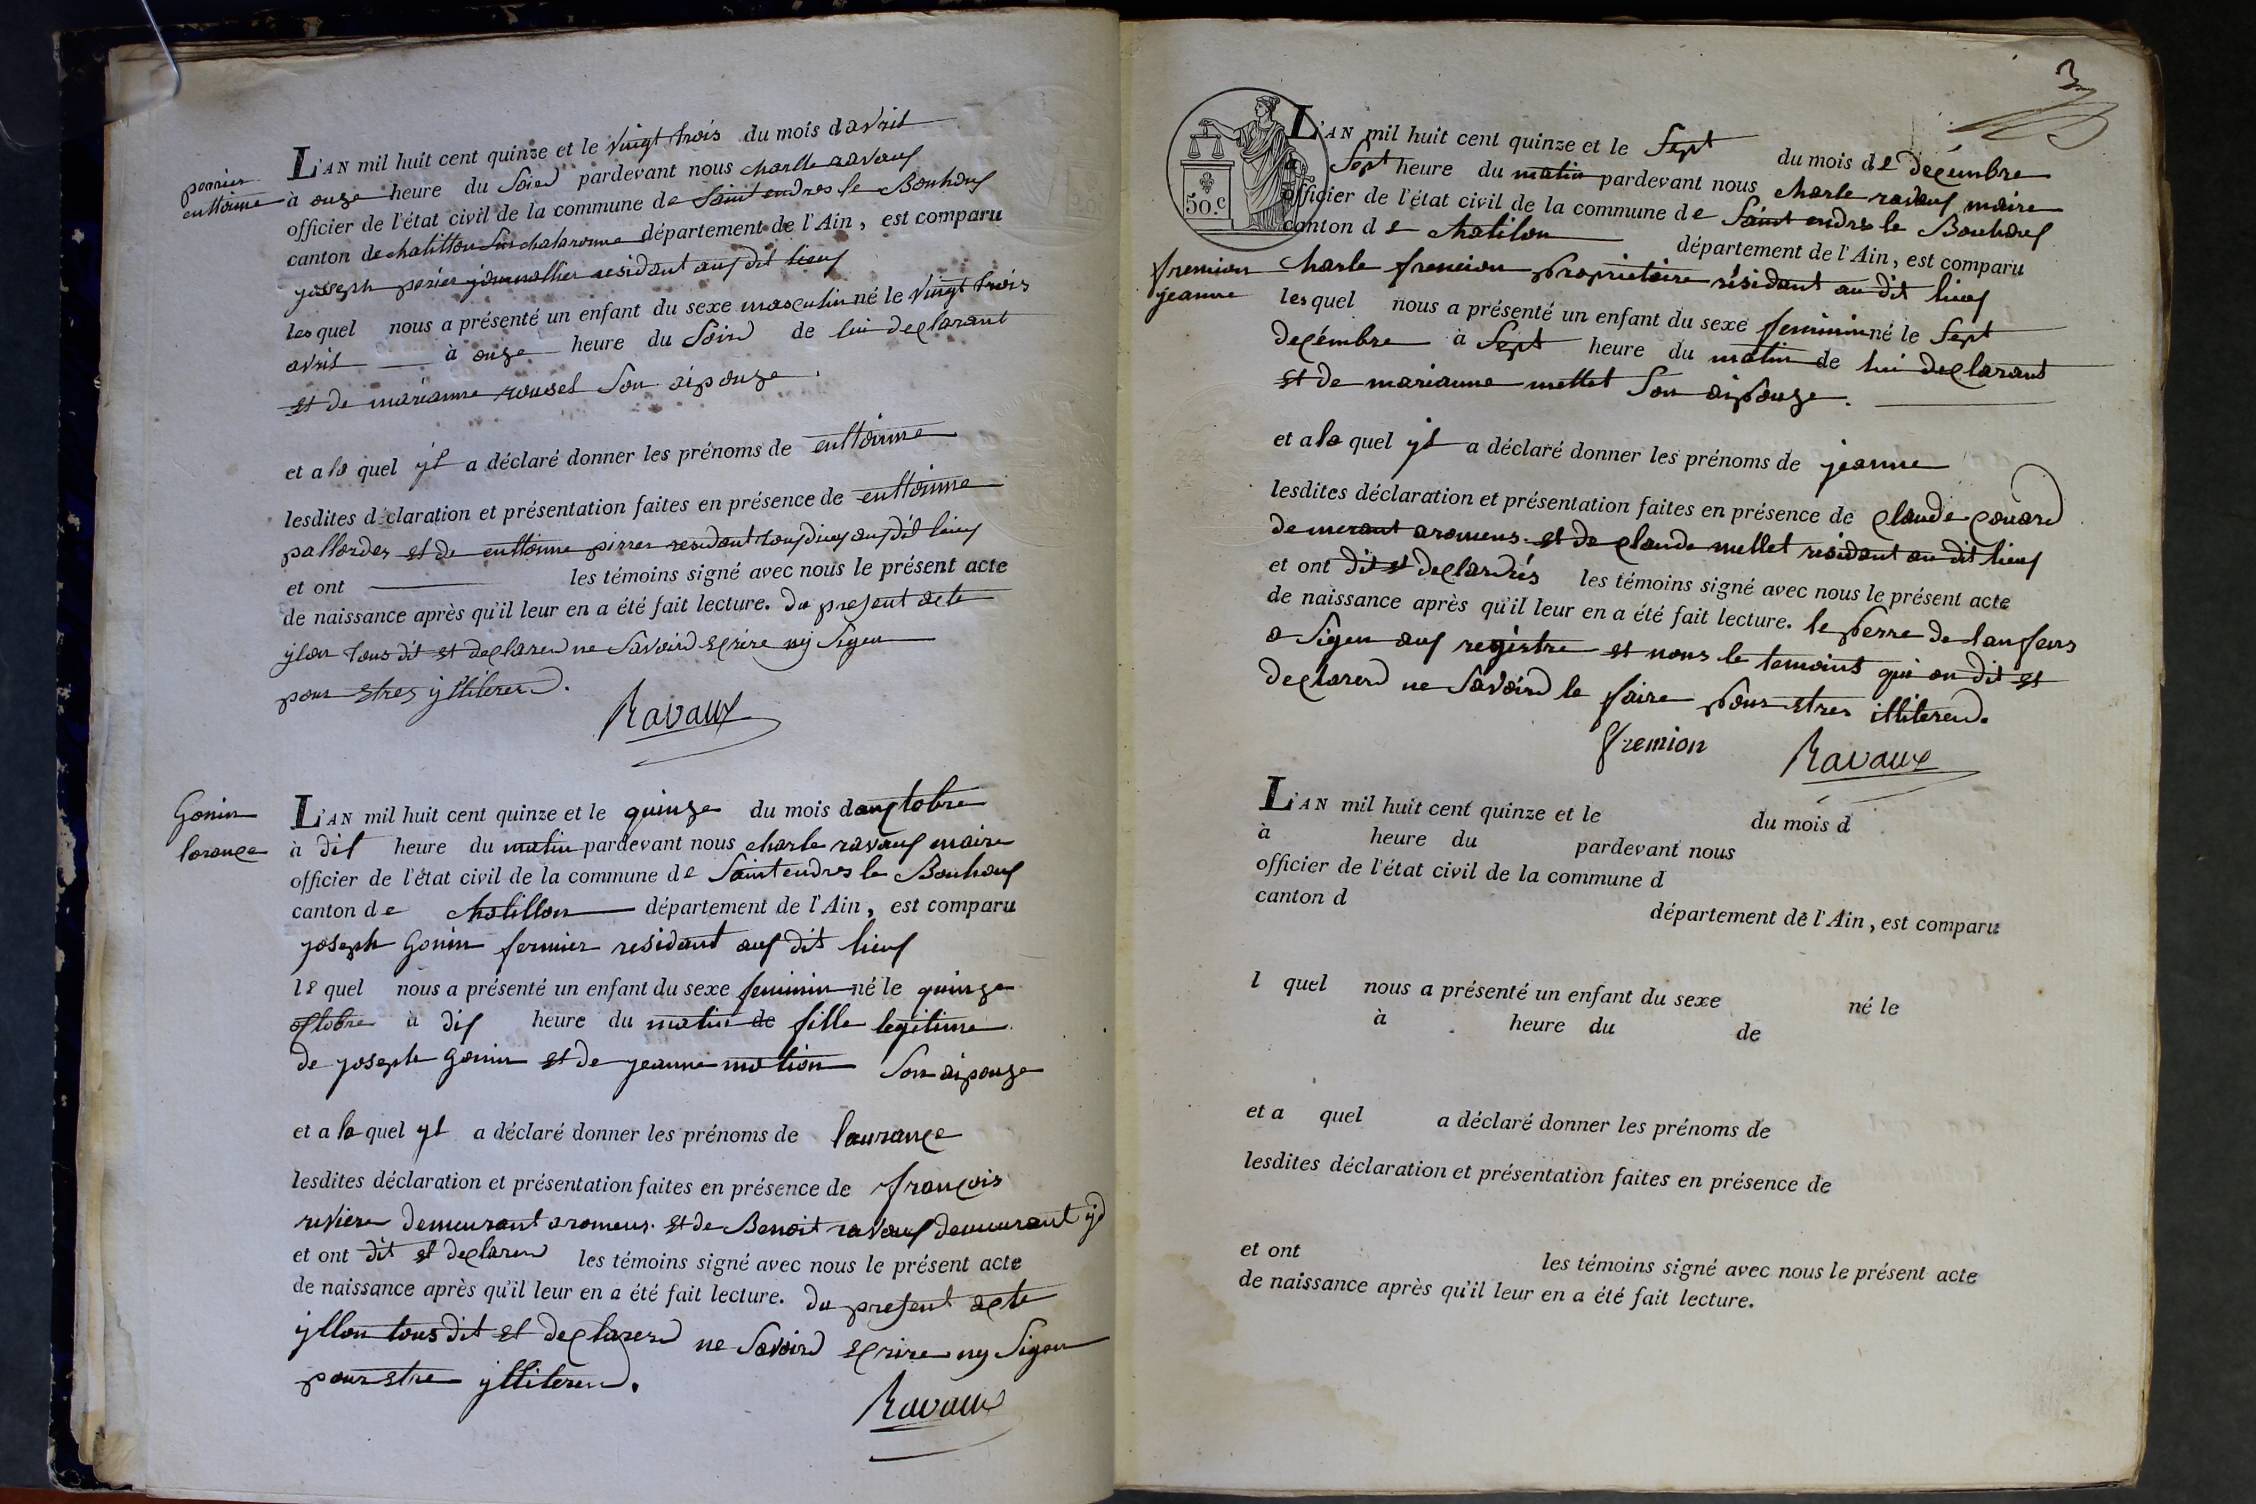 perrier
enttoinne
L'AN mil huit cent quinze et le vingt trois du mois d avril
à onze heure du Soird pardevant nous charlle ravauf
officier de l'état civil de la commune de Saint endres le Bouhouf
canton de chatillon Sur chalaronne département de l'Ain, est comparu
joseph perier journallier residant auf dit lieuf
les quel nous a présenté un enfant du sexe masculin né le vingt trois
avril à onze heure du Soird de lui declarant
et de marianne rousel Son aipouze.
et a la quel yl a déclaré donner les prénoms de enttoinne
lesdites déclaration et présentation faites en présence de enttoinne
pallordes et de enttoinne pirrer residant tous auf dit lieuf
et ont les témoins signé avec nous le présent acte
de naissance après qu'il leur en a été fait lecture. du present acte
yl on tous dit et declarerd ne Savoird Ecrire ny Sigen
pour Etres yllitererd.
Ravaux
Gonin
lorance
L'AN mil huit cent quinze et le quinze du mois d auctobre
à dif heure du matin pardevant nous charle ravauf maire
officier de l'état civil de la commune de Saint endres le Bouhouf
canton de chatillon département de l'Ain, est comparu
joseph Gonin fermier residant auf dit lieuf
le quel nous a présenté un enfant du sexe feminin né le quinze
octobre à dif heure du matin de fille legitime
de joseph gonin et de jeanne motion Son aipouze
et a la quel yl a déclaré donner les prénoms de laurance
lesdites déclaration et présentation faites en présence de françois
reviere demeurant a romeus. et de Benoit ravauf demeurant yd
et ont dit et declarerd les témoins signé avec nous le présent acte
de naissance après qu'il leur en a été fait lecture. du present acte
yllon tous dit et declarerd ne Savoird Ecrire ny Sigen
pour Etre yllitererd.
Ravaux
3
50.c
L'AN mil huit cent quinze et le Sept du mois de decémbre
à Sept heure du matin pardevant nous charle ravauf maire
officier de l'état civil de la commune de Saint endres le Bouhouf
canton d e chatilon département de l'Ain, est comparu
fremion
jeanne
charle fremion proprietaire résidant au dit lieuf
les quel nous a présenté un enfant du sexe feminin né le Sept
decémbre à Sept heure du matin de lui declarant
et de marianne mettet Son aipouze.
et a la quel yl a déclaré donner les prénoms de jeanne
lesdites déclaration et présentation faites en présence de claude couard
demerant a romeus. et de claude mettet residant au dit lieuf
et ont dit et declardrés les témoins signé avec nous le présent acte
de naissance après qu'il leur en a été fait lecture. le perre de lanfens
a Sigen auf registre et nous le temoins qui on dit et
declarerd ne Savoird le faire pour Etres illitererd.
fremion
Ravaux
L'AN mil huit cent quinze et le du mois d
à heure du pardevant nous
officier de l'état civil de la commune d
canton d département de l'Ain, est comparu
l quel nous a présenté un enfant du sexe né le
à heure du de
et a quel a déclaré donner les prénoms de
lesdites déclaration et présentation faites en présence de
et ont les témoins signé avec nous le présent acte
de naissance après qu'il leur en a été fait lecture.